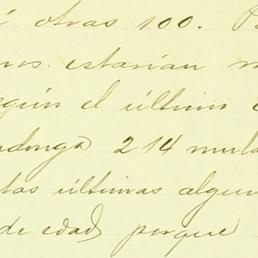 otras 100.
estarían
según el último
214 mula
últimas algun
de edad, porque